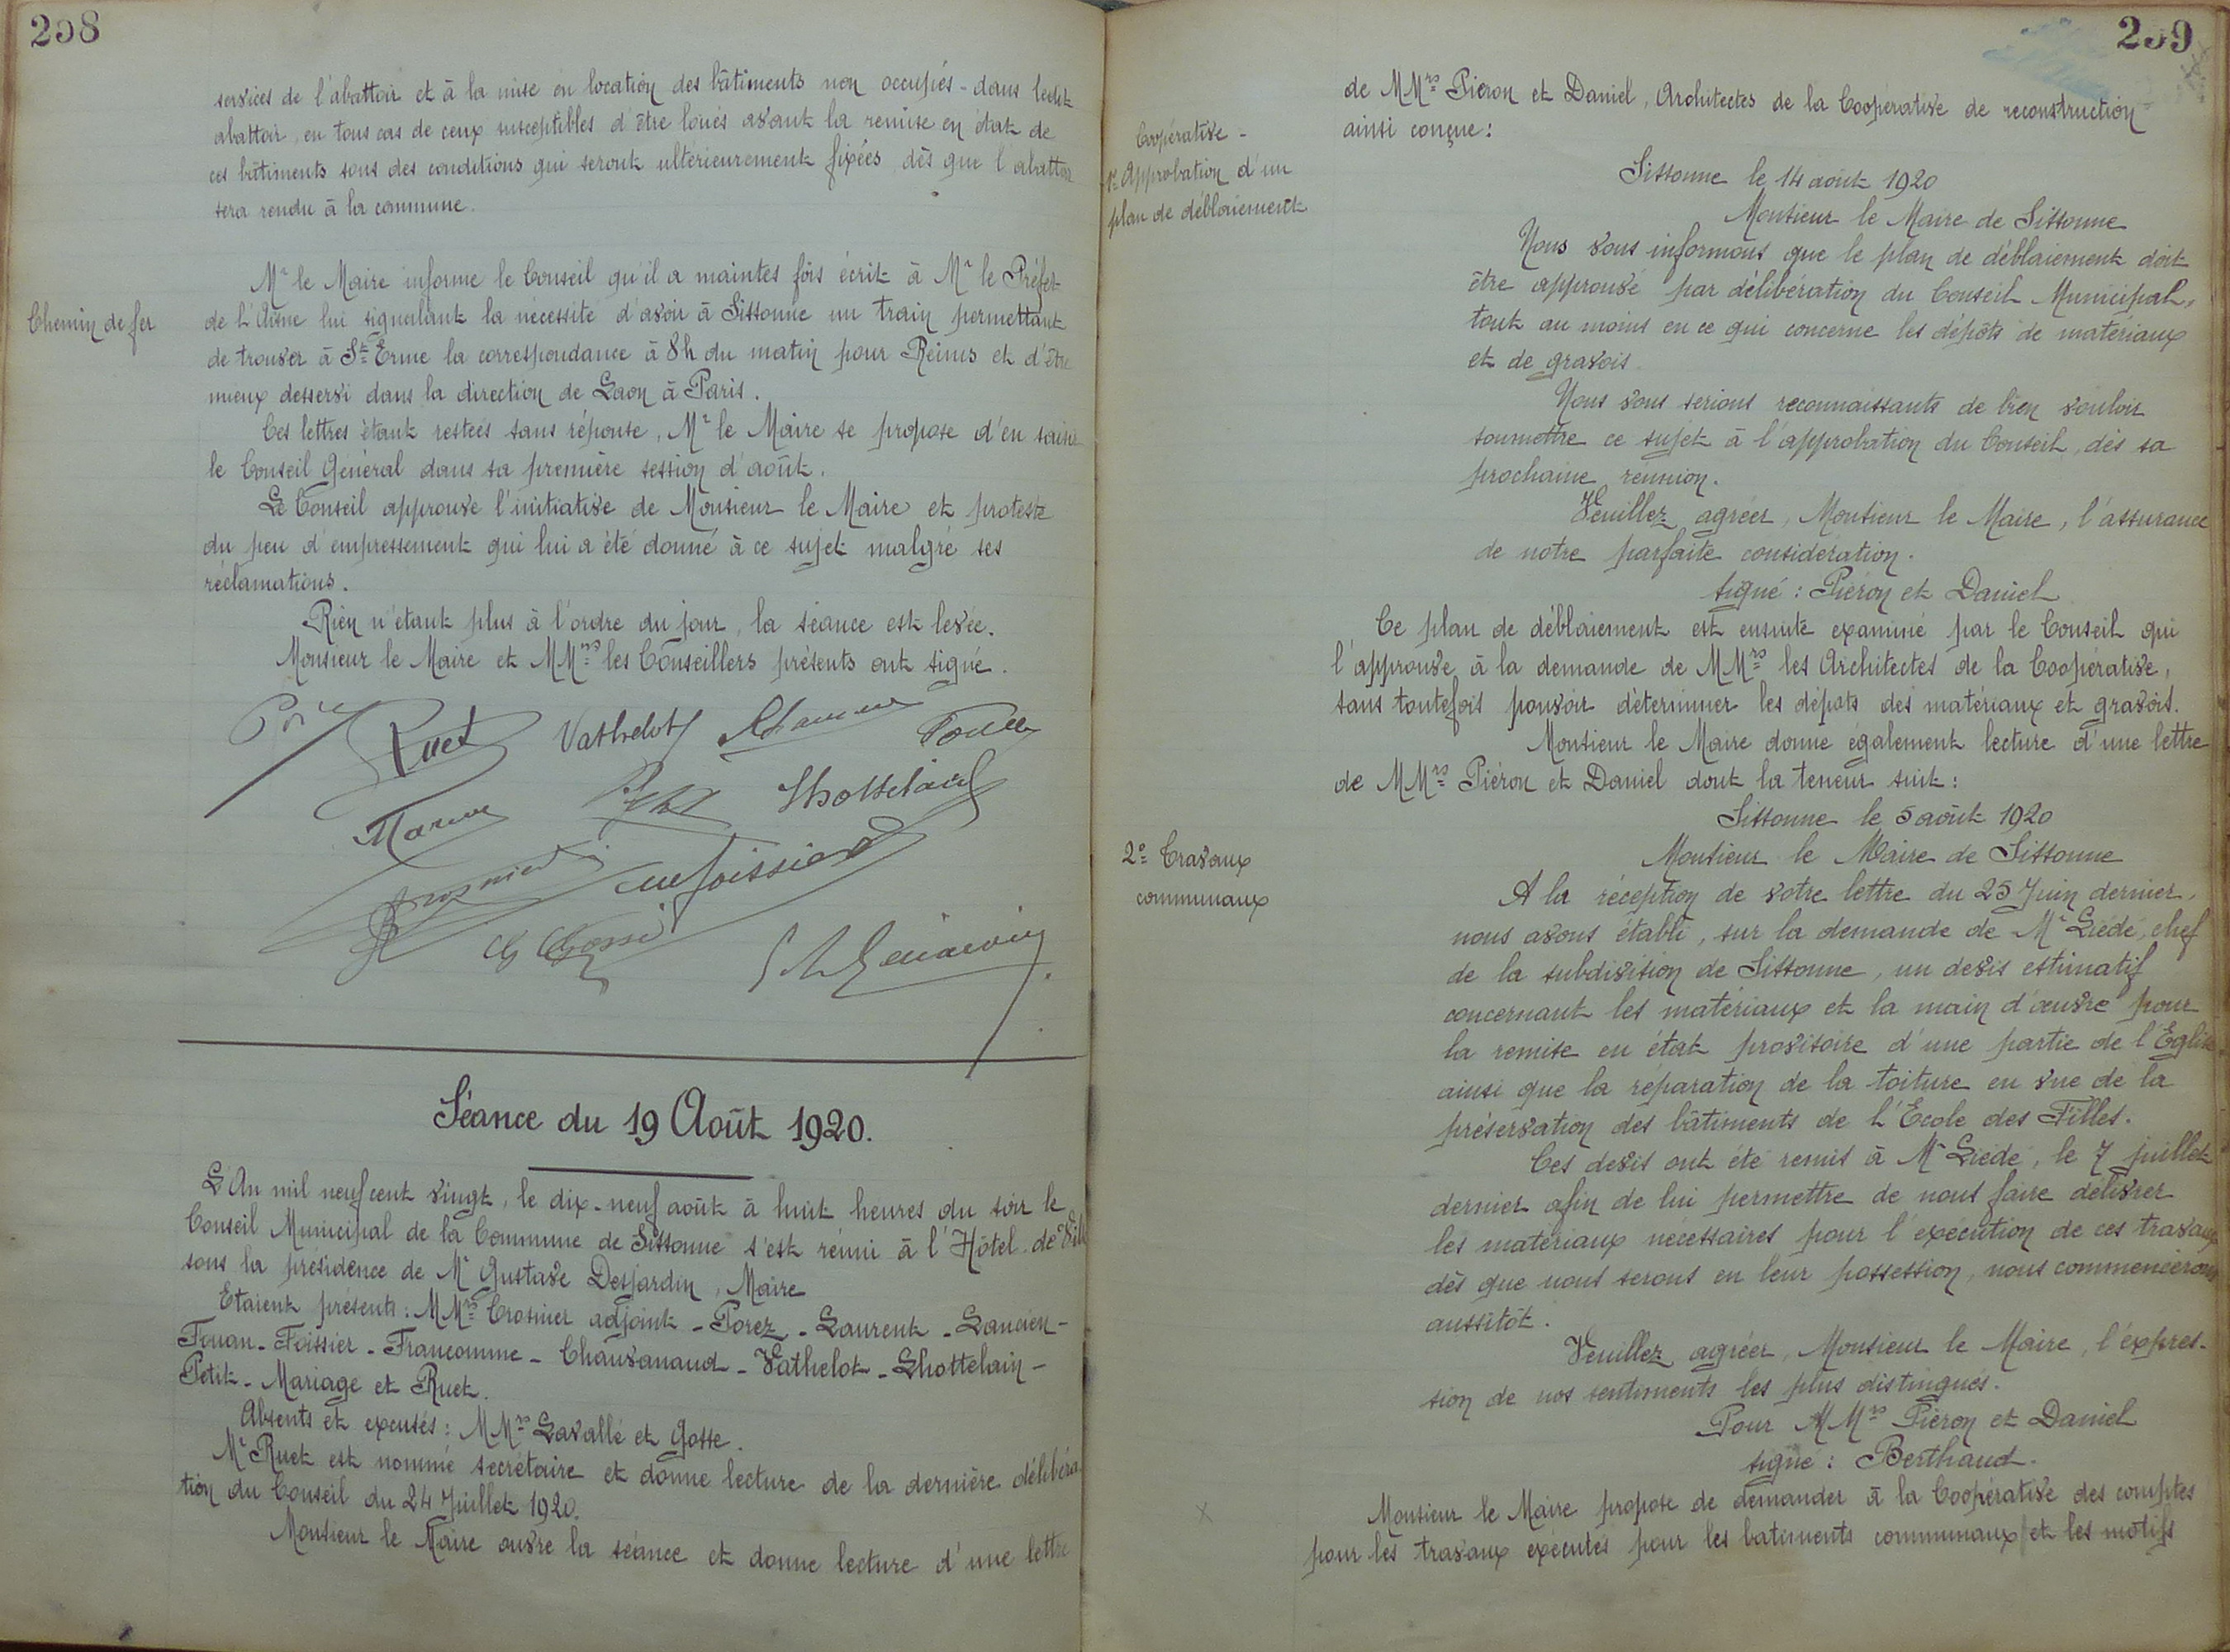 208
services de l'abattoir et à la mise en location des bâtiments non occupés - dans ledit
abattoir, en tous cas de ceux susceptibles d'être loués avant la remise en état de
ces bâtiments sous des conditions qui seront ultérieurement fixées dès que l'abattoir
sera rendu à la commune.
Chemin de fer
Mr le Maire informe le Conseil qu'il a maintes fois écrit à Mr le Préfet
de l'Aisne lui signalant la nécessité d'avoir à Sissonne un train permettant
de trouver à St Erme la correspondance à 8h du matin pour Reims et d'être
mieux desservi dans la direction de Laon à Paris.
Ces lettres étant restées sans réponse, Mr le Maire se propose d'en saisir
le Conseil Général dans sa première session d'août.
Le Conseil approuve l'initiative de Monsieur le Maire et proteste
du peu d'empressement qui lui a été donné à ce sujet malgré ses
réclamations.
Rien n'étant plus à l'ordre du jour, la séance est levée.
Monsieur le Maire et MMrs les Conseillers présents ont signé.
Ruet Vathelot
Séance du 19 Août 1920.
L'An mil neuf cent vingt, le dix-neuf août à huit heures du soir le
Conseil Municipal de la Commune de Sissonne s'est réuni à l'Hôtel de Ville
sous la présidence de Mr Gustave Desjardin, Maire
Etaient présents : MMrs Crosnier adjoint - Porez - Laurent - Lancien -
Fouan - Foissier - Francomme - Chauvanaud - Vathelot - Lhottelain -
Petit - Mariage et Ruet.
Absents et excusés : MMrs Lavallé et Gosse.
Mr Ruet est nommé secrétaire et donne lecture de la dernière délibéra-
tion du Conseil du 24 Juillet 1920.
Monsieur le Maire ouvre la séance et donne lecture d'une lettre
209
de MMrs Piéron et Daniel, Architectes de la Coopérative de reconstruction
ainsi conçue :
Coopérative -
1° Approbation d'un
plan de déblaiement
Sissonne le 14 août 1920
Monsieur le Maire de Sissonne
Nous vous informons que le plan de déblaiement doit
être approuvé par délibération du Conseil Municipal,
tout au moins en ce qui concerne les dépôts de matériaux
et de gravois.
Nous vous serions reconnaissants de bien vouloir
soumettre ce sujet à l'approbation du Conseil, dès sa
prochaine réunion.
Veuillez agréer, Monsieur le Maire, l'assurance
de notre parfaite considération.
signé : Piéron et Daniel
Ce plan de déblaiement est ensuite examiné par le Conseil qui
l'approuve à la demande de MMrs les Architectes de la Coopérative,
sans toutefois pouvoir déterminer les dépots des matériaux et gravois.
Monsieur le Maire donne également lecture d'une lettre
de MMrs Piéron et Daniel dont la teneur suit :
Sissonne le 5 août 1920
2° Travaux
communaux
Monsieur le Maire de Sissonne
A la réception de votre lettre du 25 Juin dernier,
nous avons établi, sur la demande de Mr Liédé, chef
de la subdivision de Sissonne, un devis estimatif
concernant les matériaux et la main d'œuvre pour
la remise en état provisoire d'une partie de l'Eglise
ainsi que la réparation de la toiture en vue de la
préservation des bâtiments de l'Ecole des Filles.
Ces devis ont été remis à Mr Liédé, le 7 juillet
dernier afin de lui permettre de nous faire délivrer
les matériaux nécessaires pour l'exécution de ces travaux
dès que nous serons en leur possession, nous commencerons
aussitôt.
Veuillez agréer, Monsieur le Maire, l'expres-
sion de nos sentiments les plus distingués.
Pour MMrs Piéron et Daniel
signé : Berthaud.
Monsieur le Maire propose de demander à la Coopérative des comptes
pour les travaux exécutés pour les batiments communaux et les motifs